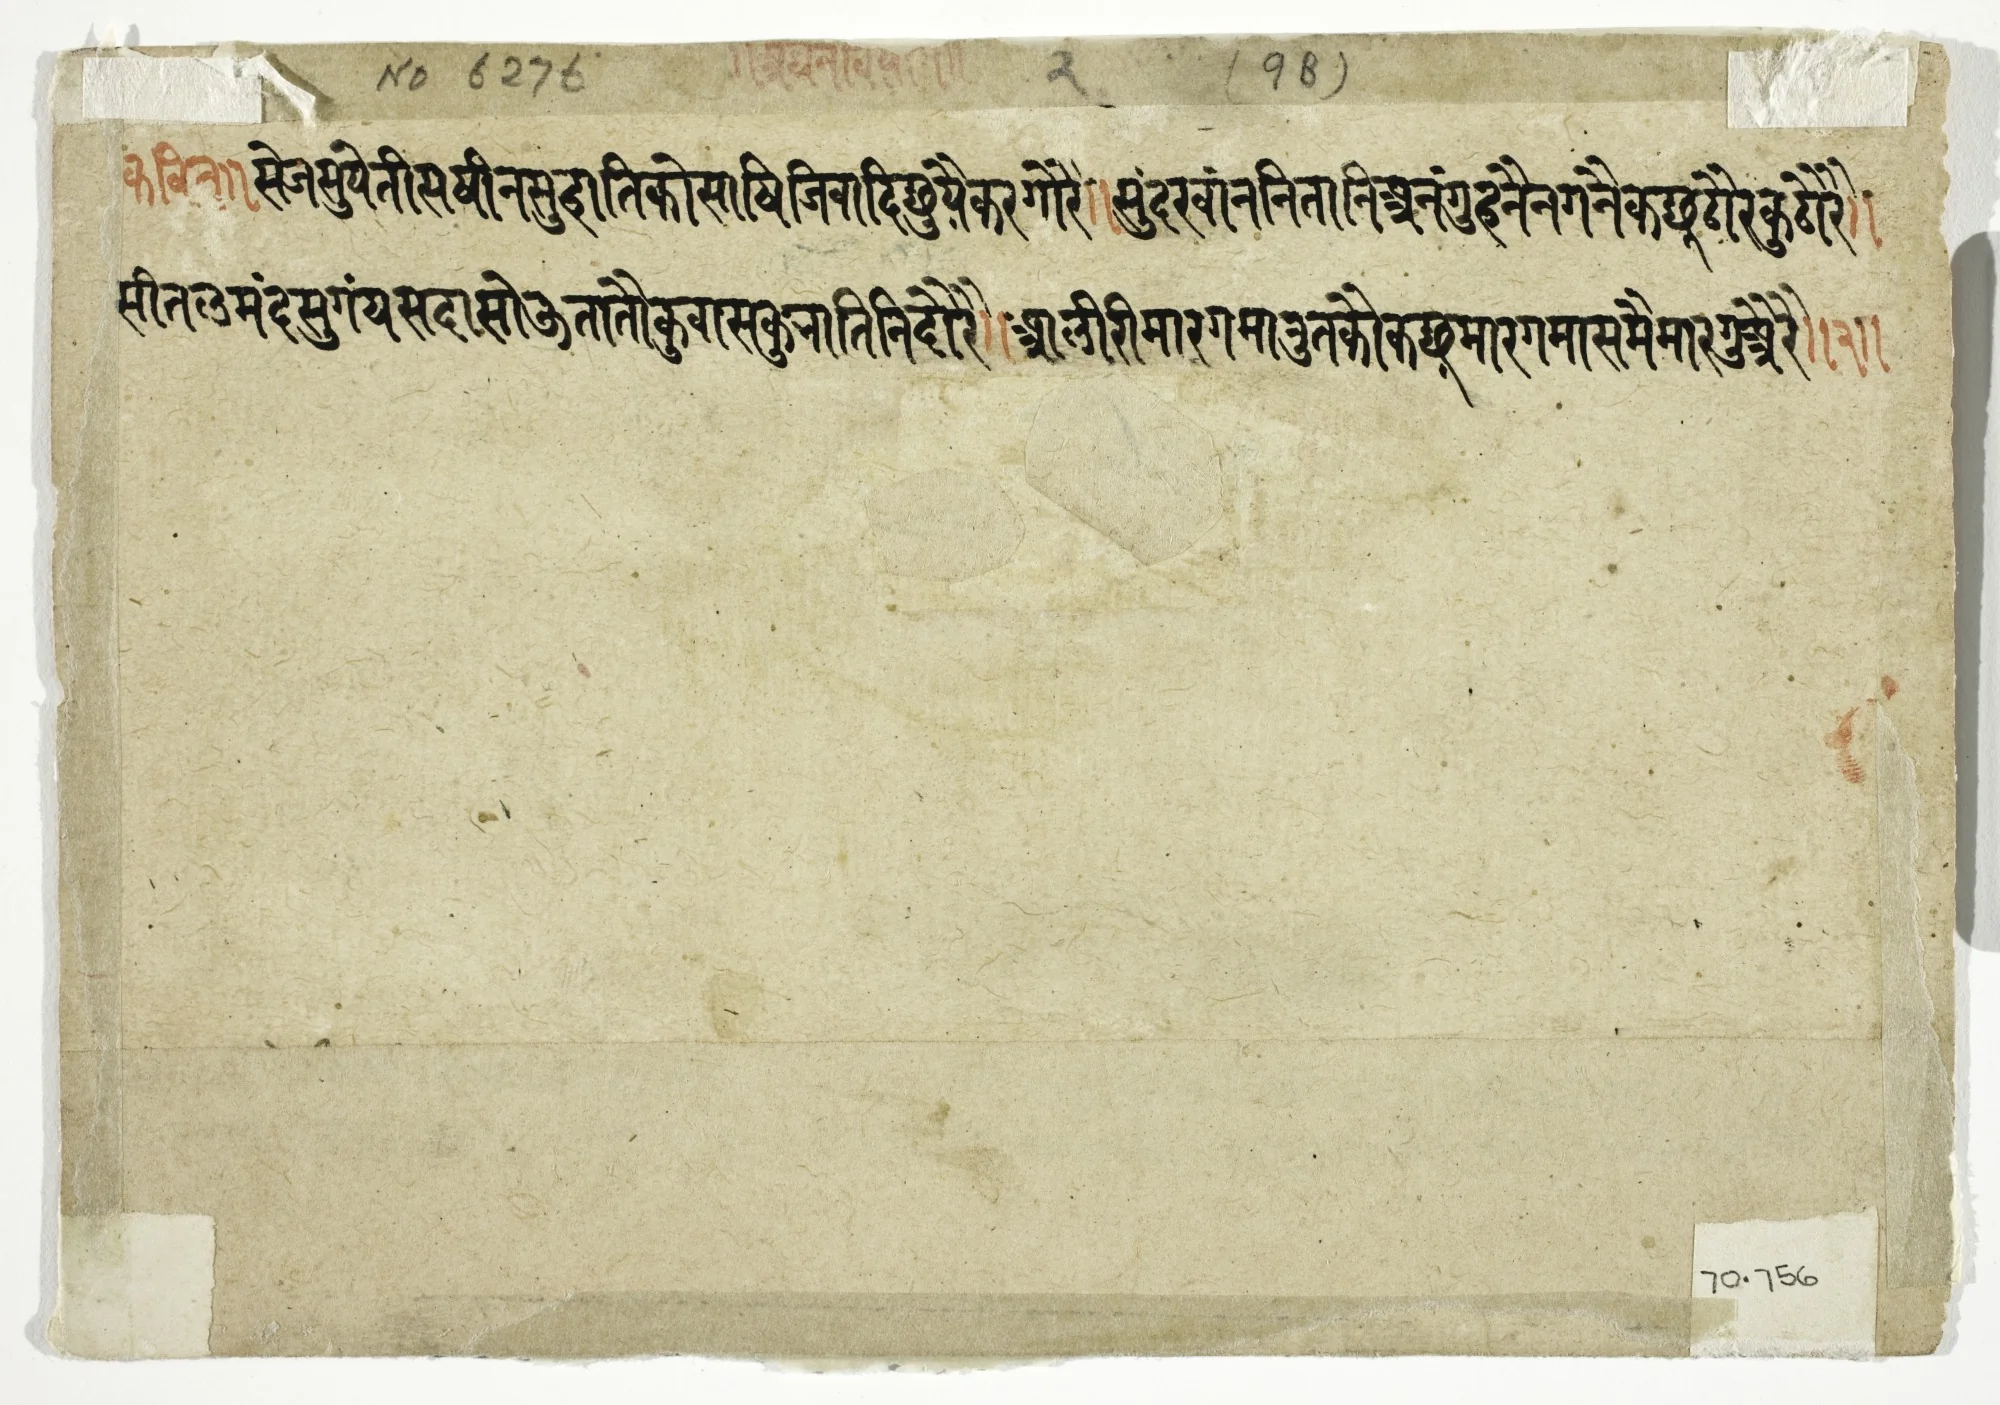 No 6276 २ (9B)
कवित्त॥ सेजसुपेतीसषीनसुहातिकोसाषिजिवादिछुयैकरगोरै॥ सुंदरषांननितानिअनंगुहनैनगनैकछूठौरकुठौरै॥
सीतलमंदसुगंधसदासोऊतातौकुवासकुजातिनिदौरै॥ आलीरीमारगमारुतकौकछूमारगमासमैमारगुऔरै॥२॥
70.756